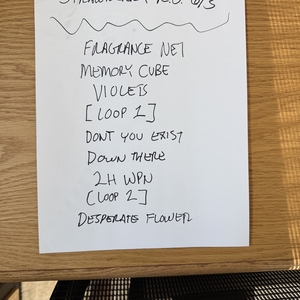 FRAGRANCE NET
MEMORY CUBE
VIOLETS
[LOOP 1]
DONT YOU EXIST
DOWN THERE
2H WPN
[LOOP 2]
DESPERATE FLOWER